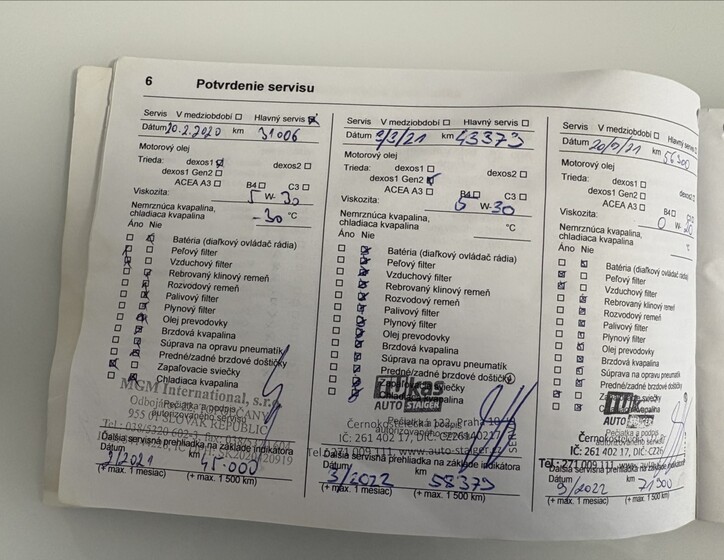 6 Potvrdenie servisu
Servis V medziobdobí Hlavný servis
Dátum 20.2.2020 km 31006
Motorový olej
Trieda: dexos1 dexos2
dexos1 Gen2
ACEA A3 B4 C3
Viskozita: 5 W- 30
Nemrznúca kvapalina,
chladiaca kvapalina -30 °C
Áno Nie
Batéria (diaľkový ovládač rádia)
Peľový filter
Vzduchový filter
Rebrovaný klinový remeň
Rozvodový remeň
Palivový filter
Plynový filter
Olej prevodovky
Brzdová kvapalina
Súprava na opravu pneumatík
Predné/zadné brzdové doštičky
Zapaľovacie sviečky
Chladiaca kvapalina
MGM International, s.r.o.
Pečiatka a podpis
autorizovaného servisu
955 01 SLOVAK REPUBLIC
Ďalšia servisná prehliadka na základe indikátora
Dátum km
3/2021 45.000
(+ max. 1 mesiac) (+ max. 1 500 km)
Servis V medziobdobí Hlavný servis
Dátum 9/3/21 km 43373
Motorový olej
Trieda: dexos1 dexos2
dexos1 Gen2
ACEA A3 B4 C3
Viskozita: W-30
Nemrznúca kvapalina,
chladiaca kvapalina °C
Áno Nie
Batéria (diaľkový ovládač rádia)
Peľový filter
Vzduchový filter
Rebrovaný klinový remeň
Rozvodový remeň
Palivový filter
Plynový filter
Olej prevodovky
Brzdová kvapalina
Súprava na opravu pneumatík
Predné/zadné brzdové doštičky
Zapaľovacie sviečky
Chladiaca kvapalina
AUTO STAIGER
Pečiatka a podpis
autorizovaného servisu
IČ: 261 402 17, DIČ: CZ26140217
Tel.: 271 009 111, www.auto-staiger.cz
Ďalšia servisná prehliadka na základe indikátora
Dátum km
3/2022 58373
(+ max. 1 mesiac) (+ max. 1 500 km)
Servis V medziobdobí Hlavný servis
Dátum km 56300
Motorový olej
Trieda: dexos1 dexos2
dexos1 Gen2
ACEA A3 B4
Viskozita: 0 W-
Nemrznúca kvapalina,
chladiaca kvapalina
Áno Nie
Batéria (diaľkový ovládač rádia)
Peľový filter
Vzduchový filter
Rebrovaný klinový remeň
Rozvodový remeň
Palivový filter
Plynový filter
Olej prevodovky
Brzdová kvapalina
Súprava na opravu pneumatík
Predné/zadné brzdové
AUTO
Pečiatka a podpis
autorizovaného servisu
IČ: 261 402 17, DIČ: CZ26
Tel.: 271 009 111, www.
Ďalšia servisná prehliadka na základe indikátora
Dátum km
9/2022 71300
(+ max. 1 mesiac) (+ max. 1 500 km)